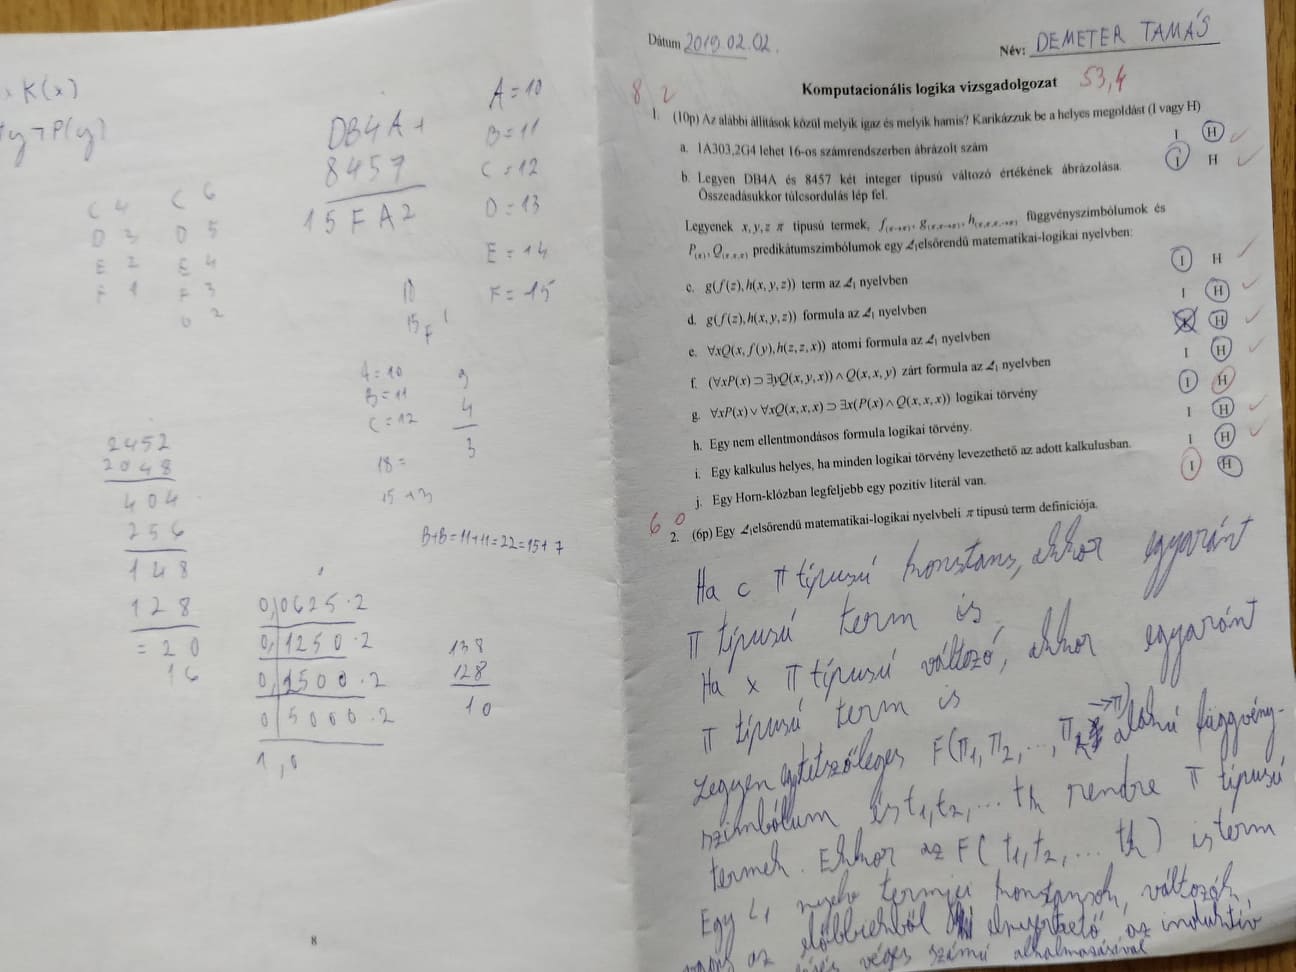 K(x)
y ¬P(y)
DB4A +
8457
15FA2
A=10
B=11
C=12
D=13
E=14
F=15
C 4 C 6
D 3 D 5
E 2 E 4
F 1 F 3
2
18
15 F 1
A=10
B=11
C=12
9
4
3
18=
15+3
B+B=11+11=22=15+7
2452
2048
404
256
148
128
=20
16
0,0625·2
0,1250·2
0,2500·2
0,5000·2
1,0
138
128
10
8
Dátum 2019.02.02.
Név: DEMETER TAMÁS
8 2
Komputacionális logika vizsgadolgozat 53,4
1. (10p) Az alábbi állítások közül melyik igaz és melyik hamis? Karikázzuk be a helyes megoldást (I vagy H)
a. 1A303,2G4 lehet 16-os számrendszerben ábrázolt szám I H
b. Legyen DB4A és 8457 két integer típusú változó értékének ábrázolása. I H
Összeadásukkor túlcsordulás lép fel.
Legyenek x,y,z π típusú termek, f(π→π), g(π,π→π), h(π,π,π→π) függvényszimbólumok és
P(π), Q(π,π,π) predikátumszimbólumok egy ℒ₁elsőrendű matematikai-logikai nyelvben:
c. g(f(z),h(x,y,z)) term az ℒ₁ nyelvben I H
d. g(f(z),h(x,y,z)) formula az ℒ₁ nyelvben I H
e. ∀xQ(x,f(y),h(z,z,x)) atomi formula az ℒ₁ nyelvben I H
f. (∀xP(x) ⊃ ∃yQ(x,y,x)) ∧ Q(x,x,y) zárt formula az ℒ₁ nyelvben I H
g. ∀xP(x) ∨ ∀xQ(x,x,x) ⊃ ∃x(P(x) ∧ Q(x,x,x)) logikai törvény I H
h. Egy nem ellentmondásos formula logikai törvény. I H
i. Egy kalkulus helyes, ha minden logikai törvény levezethető az adott kalkulusban. I H
j. Egy Horn-klózban legfeljebb egy pozitív literál van. I H
6 0
2. (6p) Egy ℒ₁elsőrendű matematikai-logikai nyelvbeli π típusú term definíciója.
Ha c π típusú konstans, akkor egyaránt
π típusú term is
Ha x π típusú változó, akkor egyaránt
π típusú term is
Legyen tetszőleges F(π₁,π₂,...,π →π) alakú függvény-
szimbólum és t₁,t₂,... th rendre π típusú
termek. Ekkor az F(t₁,t₂,... th) is term
Egy L₁ nyelv termjei konstansok, változók
az előbbiekből elnyerhető az induktív
véges számú alkalmazásával